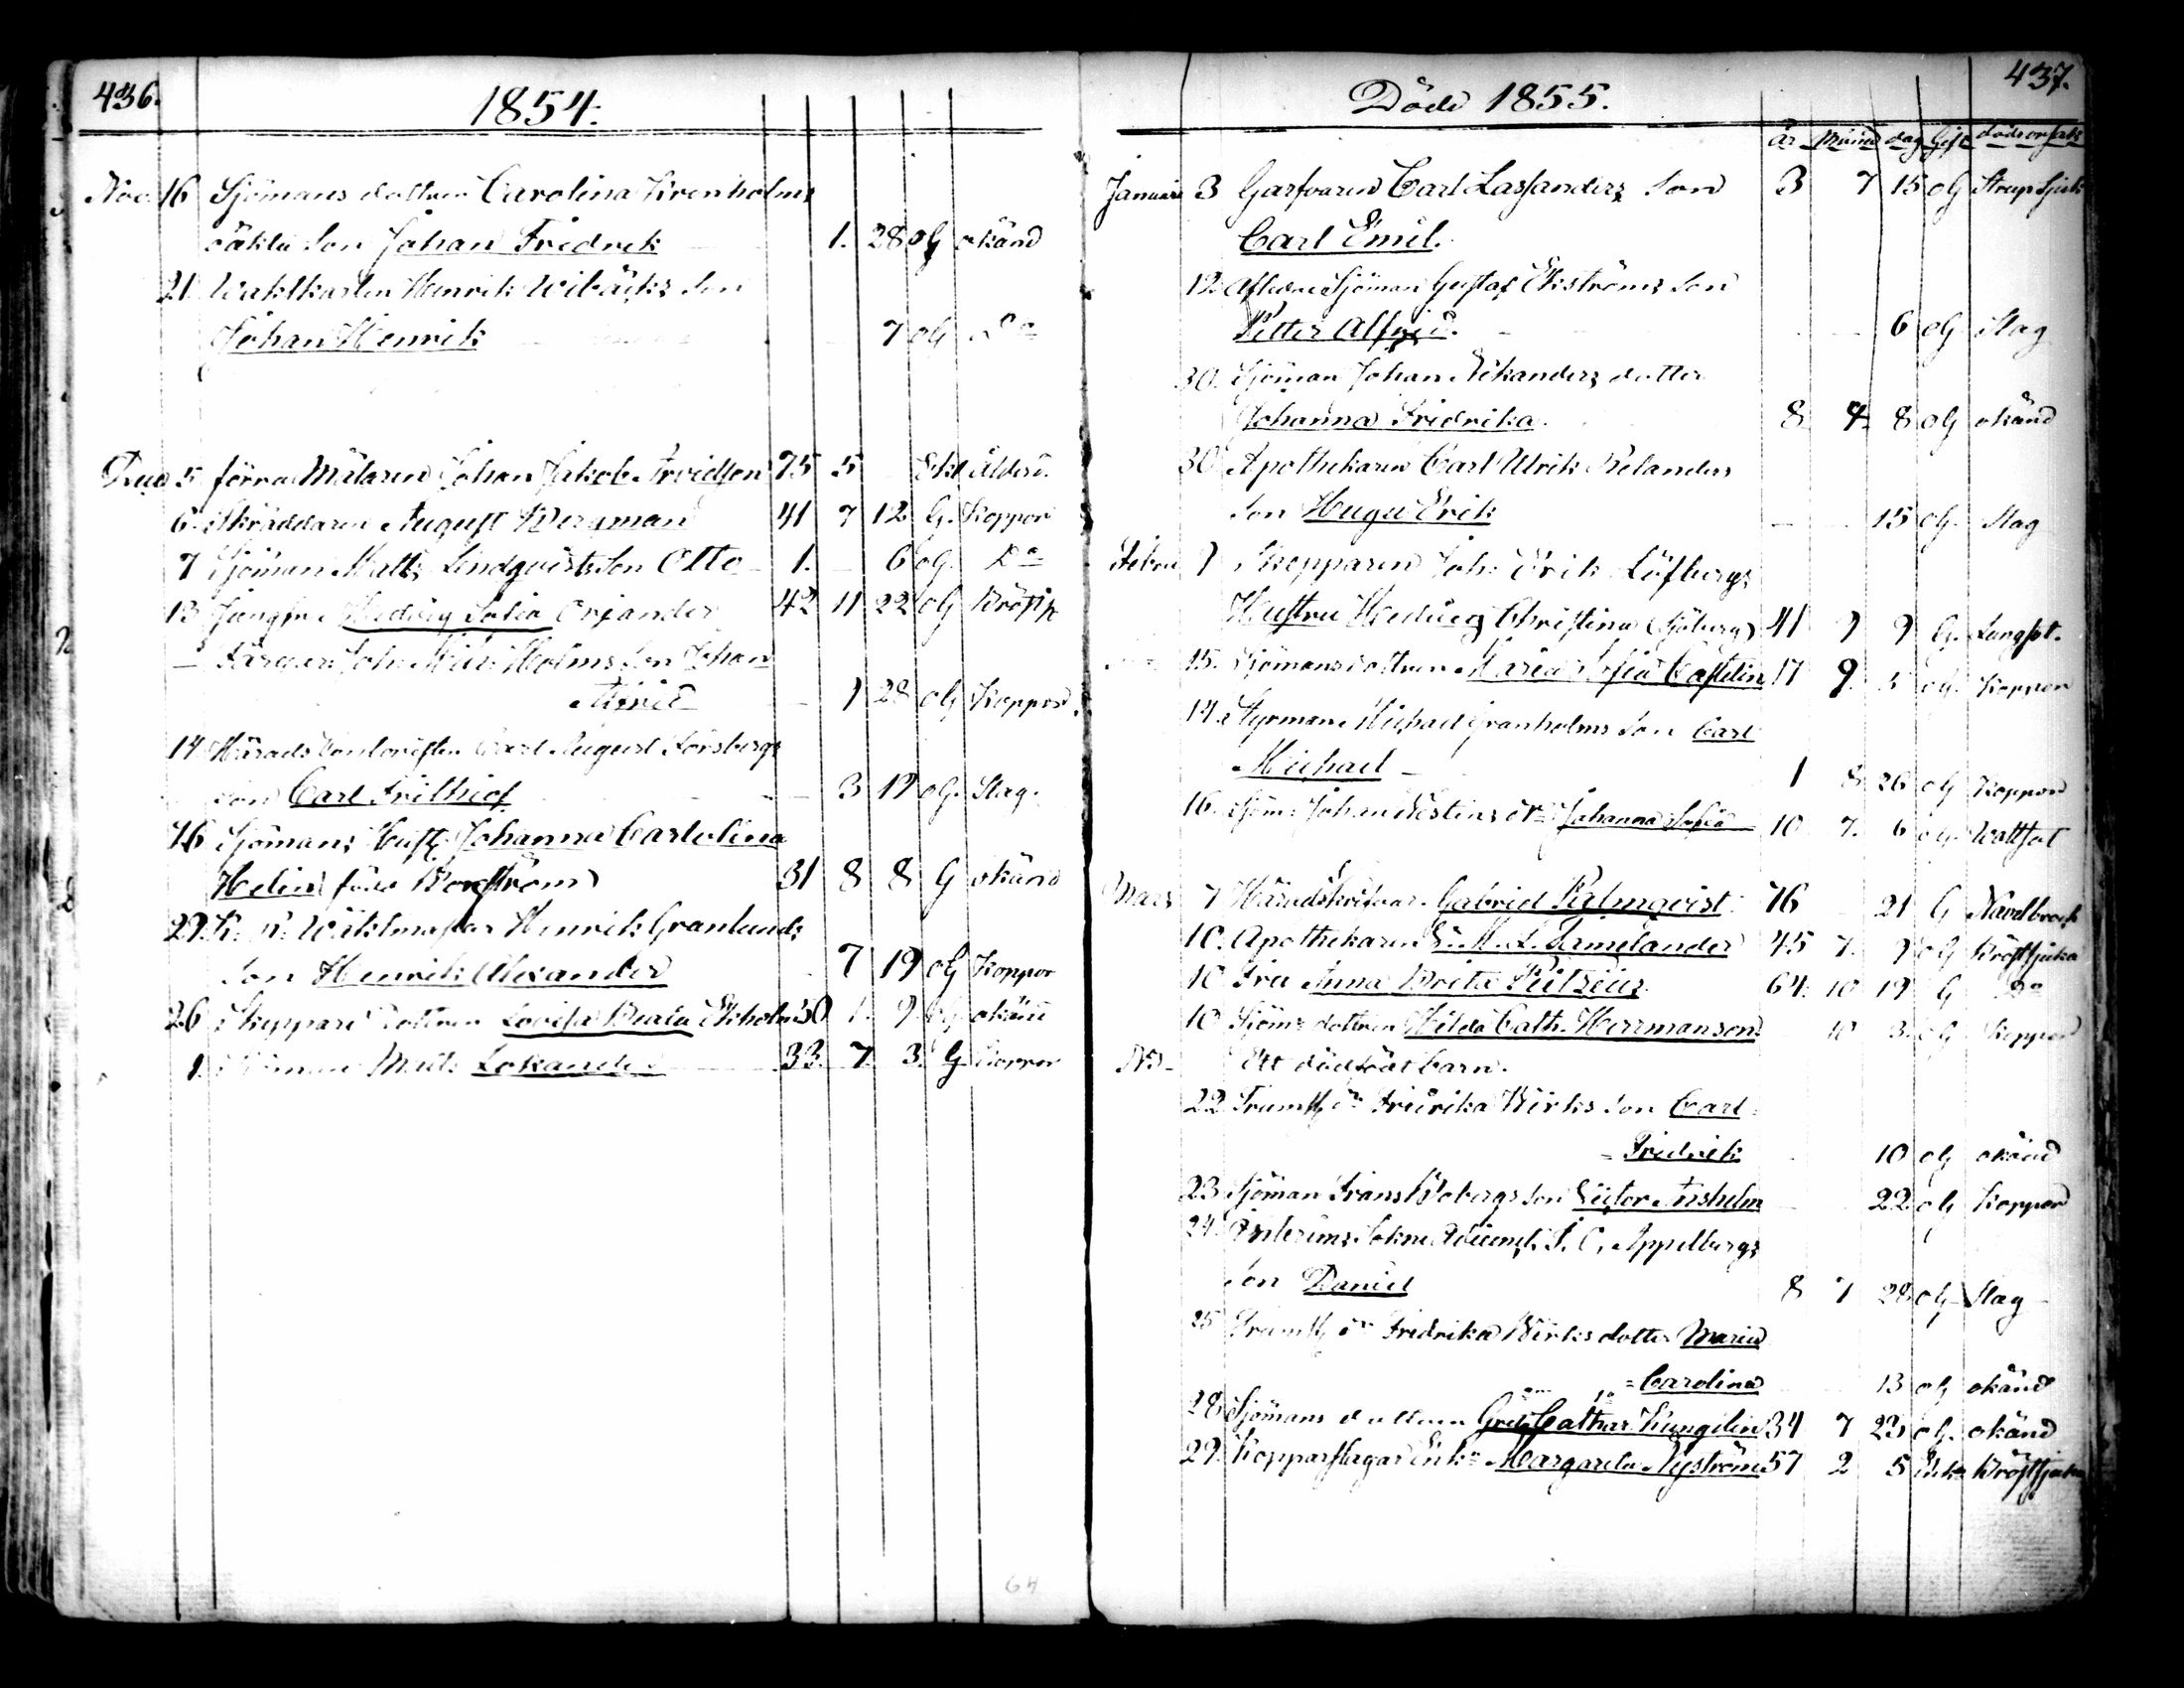 436.
1854.
Nov. 16 Sjömans dottren Carolina Krenholms
oäkta Son Johan Fredrik 1. 28 oG okänd
21 Waktkarlen Henrik Wibäcks Son
Johan Henrik 7 oG Do
5 förra Målaren Johan Jakob Arvidsson 75 5 Enkl. Ålderd.
6. Skräddaren August Bergman 41 7 12 G. Koppor
7 Sjöman Matts Lindqvists Son Otto 1. 6 oG. Do
13 Jungfr. Hedvig Sofia Orjander 42 11 22 oG Bröstsj.
Holms Son Johan
1 28 oG Koppor
14 Härads Carl August Forsbergs
son Carl Frithiof 3 19 oG. Slag.
16 Sjömans Hust. Johanna Carolina
Helin född Borgström 31 8 8 G okänd
Waktmästar Henrik Granlunds
Son Henrik Alexander 7 19 oG Koppor
26 Skeppare dottren Lovisa Beata Ekholm 50 1. 9. oG okänd
1. Lokander 33. 7. 3. G Koppor
64
437.
Döde 1855.
år Månad dag Gift dödsorsak
Januari 3 Garfvaren Carl Lassanders Son 3 7 15 oG Strupsjuk
Carl Emil.
12. Afledne Sjöman Gustaf Ekströms Son
Petter Alfrid. 6 oG Slag
30. Sjöman Johan Nikanders dotter
Johanna Fredrika. 8 4. 8 oG okänd
30 Apothekaren Carl Ulrik Relanders
Son Hugo Erik 15 oG. Slag
Febru Skepparen Joh: Erik Löfbergs
Hustru Hedvig Christina (Sjöberg) 41 9 9 G. Lungsot.
15. Sjömansdottren Maria Sofia Castelin 17 9. 5 oG. Koppor
14. Styrman Michael Granholms Son Carl
Michael 1 8 26 oG Koppor
16. Sjöm: Johan dr Johanna Sofia 10 7. 6 oG. Wattsot
Mars 7 Häradskrifvar. Gabriel Palmqvist. 76 21 G Navelbrock
10. Apothekaren 45 7. 9 oG Bröstsjuka
10 Fru Anna Brita 64. 10 19 G Do
10 Sjöms dottren Hilda Cath. Herrmanson. 10 3. oG Koppor
No. Ett dödfödt barn.
22 Fredrika Birks Son Carl =
= Fredrik 10 oG okänd
23 Sjöman Frans Bobergs Son Victor Anshelm 22 oG Koppor
24. Interims Sokne Adjunct. J. C. Appelbergs
Son Daniel 8 7 28 oG Slag
25 Fredrika Birks dotter Maria
= Carolina 13 oG okänd
28 Sjömans dottren Greta Cathar. Kungelin 34 7 23 oG. okänd
29. Kopparslagar Enk: Margareta Nyström 57 2 5 Enka Bröstsjuka